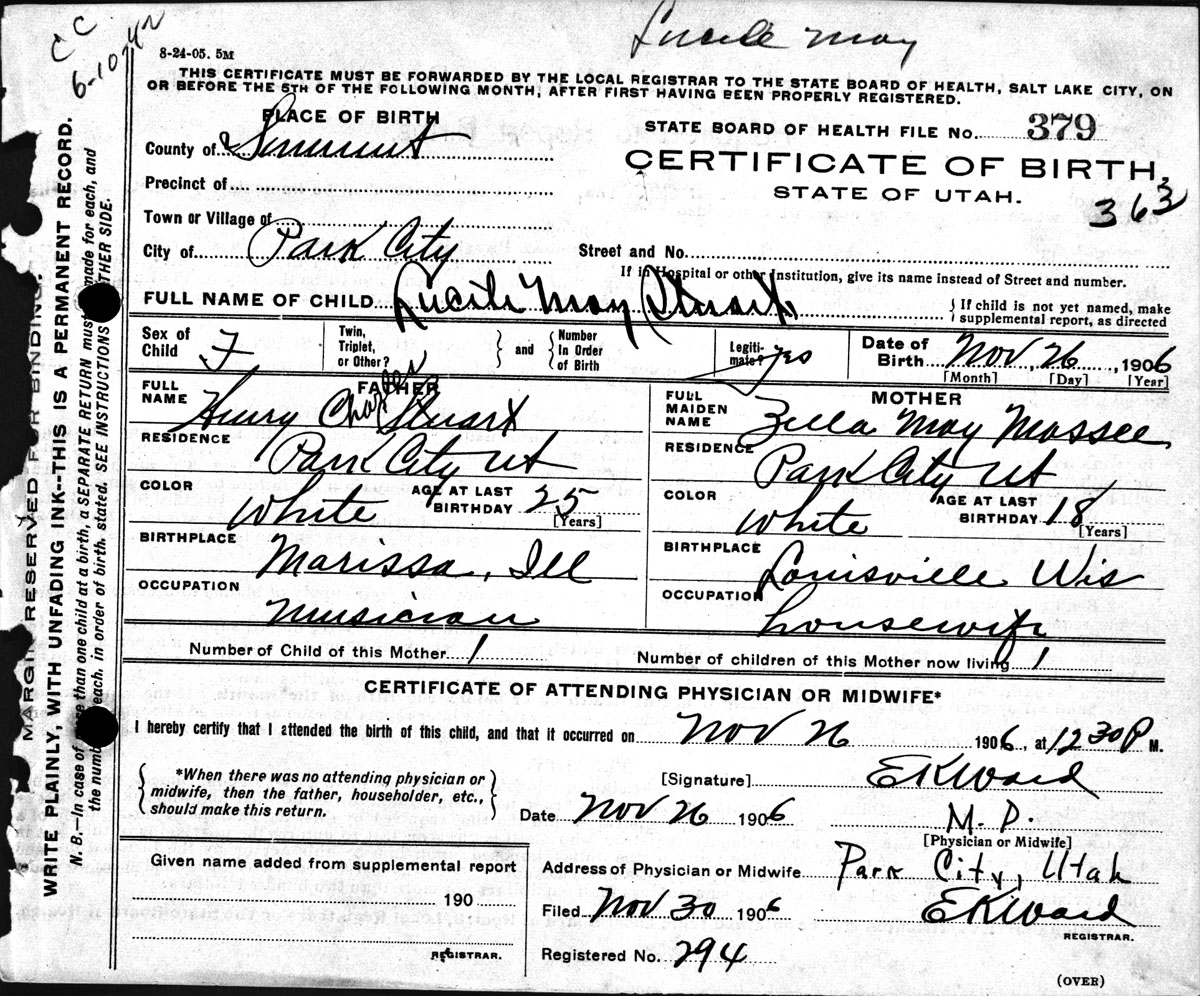 CC
6-10-42
8-24-05. 5M
Lucile May
THIS CERTIFICATE MUST BE FORWARDED BY THE LOCAL REGISTRAR TO THE STATE BOARD OF HEALTH, SALT LAKE CITY, ON
OR BEFORE THE 5TH OF THE FOLLOWING MONTH, AFTER FIRST HAVING BEEN PROPERLY REGISTERED.
PLACE OF BIRTH
County of Summit
Precinct of
Town or Village of
City of Park City
STATE BOARD OF HEALTH FILE No. 379
CERTIFICATE OF BIRTH,
STATE OF UTAH.
363
Street and No.
If in Hospital or other Institution, give its name instead of Street and number.
FULL NAME OF CHILD Lucile May Stuart
If child is not yet named, make
supplemental report, as directed
Sex of Child F
Twin, Triplet, or Other?
and
Number In Order of Birth
Legiti-mate? yes
Date of Birth Nov, 26, 1906
[Month] [Day] [Year]
FATHER
FULL NAME Henry Charles Stuart
RESIDENCE Park City Ut
COLOR White
AGE AT LAST BIRTHDAY 25
[Years]
BIRTHPLACE Marissa, Ill
OCCUPATION Musician
MOTHER
FULL MAIDEN NAME Zella May Massee
RESIDENCE Park City Ut
COLOR White
AGE AT LAST BIRTHDAY 18
[Years]
BIRTHPLACE Louisville Wis
OCCUPATION housewife
Number of Child of this Mother 1
Number of children of this Mother now living 1
CERTIFICATE OF ATTENDING PHYSICIAN OR MIDWIFE*
I hereby certify that I attended the birth of this child, and that it occurred on Nov 26 1906, at 12 30 P M.
*When there was no attending physician or
midwife, then the father, householder, etc.,
should make this return.
[Signature] EKWard
Date Nov 26 1906
M. D.
[Physician or Midwife]
Given name added from supplemental report
190
REGISTRAR.
Address of Physician or Midwife Park City, Utah
Filed Nov 30 1906
EKWard
REGISTRAR.
Registered No. 294
(OVER)
MARGIN RESERVED FOR BINDING.
WRITE PLAINLY, WITH UNFADING INK--THIS IS A PERMANENT RECORD.
N. B.—In case of more than one child at a birth, a SEPARATE RETURN must made for each, and
the number each, in order of birth, stated. SEE INSTRUCTIONS OTHER SIDE.